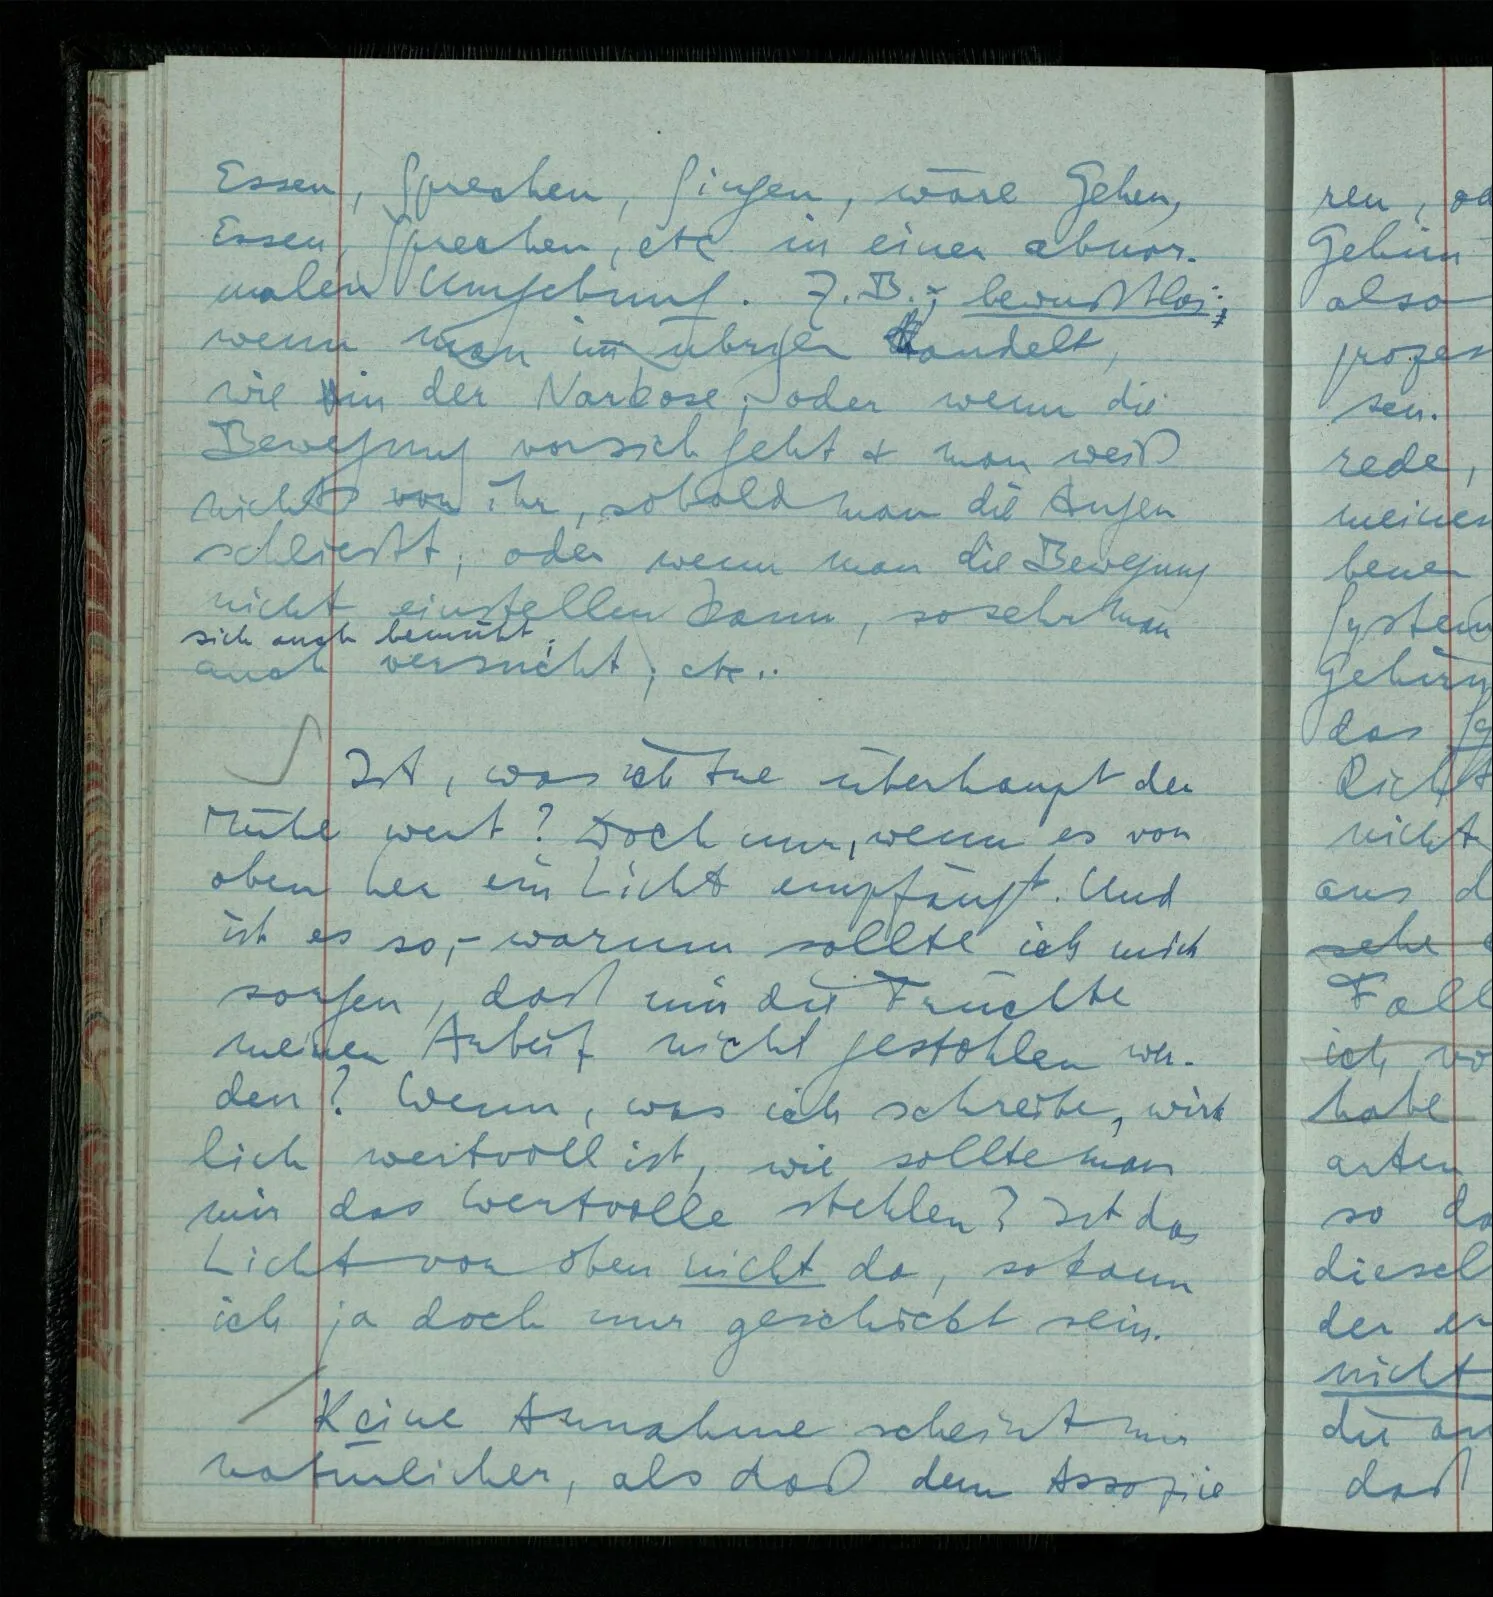 Essen, Sprechen, Singen, wäre Gehen,
Essen, Sprechen, etc in einer abnor-
malen Umgebung. Z.B.: bewußtlos;
wenn man im übrigen handelt,
wie in der Narkose; oder wenn die
Bewegung vorsich geht & man weiß
nichts von ihr, sobald man die Augen
schließt; oder wenn man die Bewegung
nicht einstellen kann, sosehr man
sich auch bemüht;
auch versucht; etc..
Ist, was ich tue überhaupt der
Mühe wert? Doch nur, wenn es von
oben her ein Licht empfängt. Und
ist es so, – warum sollte ich mich
sorgen, daß mir die Früchte
meiner Arbeit nicht gestohlen wer-
den? Wenn, was ich schreibe, wirk
lich wertvoll ist, wie sollte man
mir das Wertvolle stehlen? Ist das
Licht von oben nicht da, so kann
ich ja doch nur geschickt sein.
Keine Annahme scheint mir
natürlicher, als daß dem Assozie
ren, od
Gehirn
also
prozes
sen.
rede,
meines
bener
System
Gehirn
das
Richt
nicht
aus d
sehe
Fall
ich vo
habe
arten
so da
diesel
der er
nicht
die an
daß